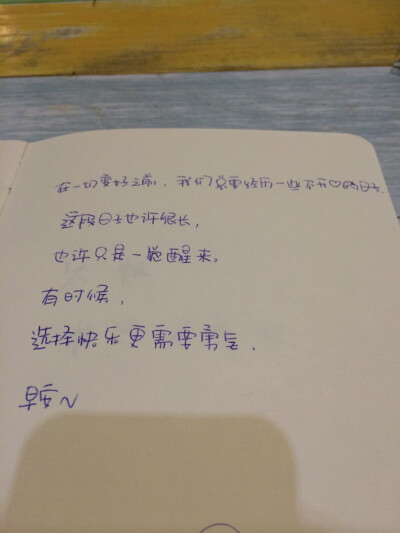 在一切变好之前，我们总要经历一些不开♡的日子.
这段日子也许很长，
也许只是一觉醒来。
有时候，
选择快乐更需要勇气.
早安~